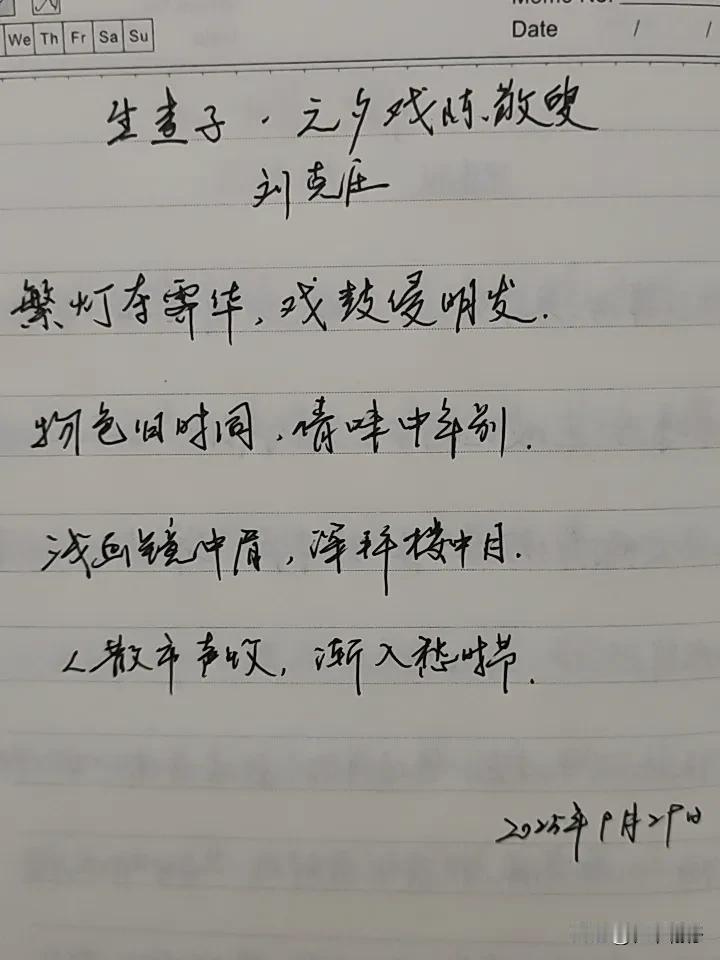 Memo No.
We Th Fr Sa Su
Date / /
生查子·元夕戏陈敬叟
刘克庄
繁灯夺霁华,戏鼓侵明发.
物色旧时同,情味中年别.
浅画镜中眉,深拜楼中月.
人散市声收,渐入愁时节.
2025年9月29日